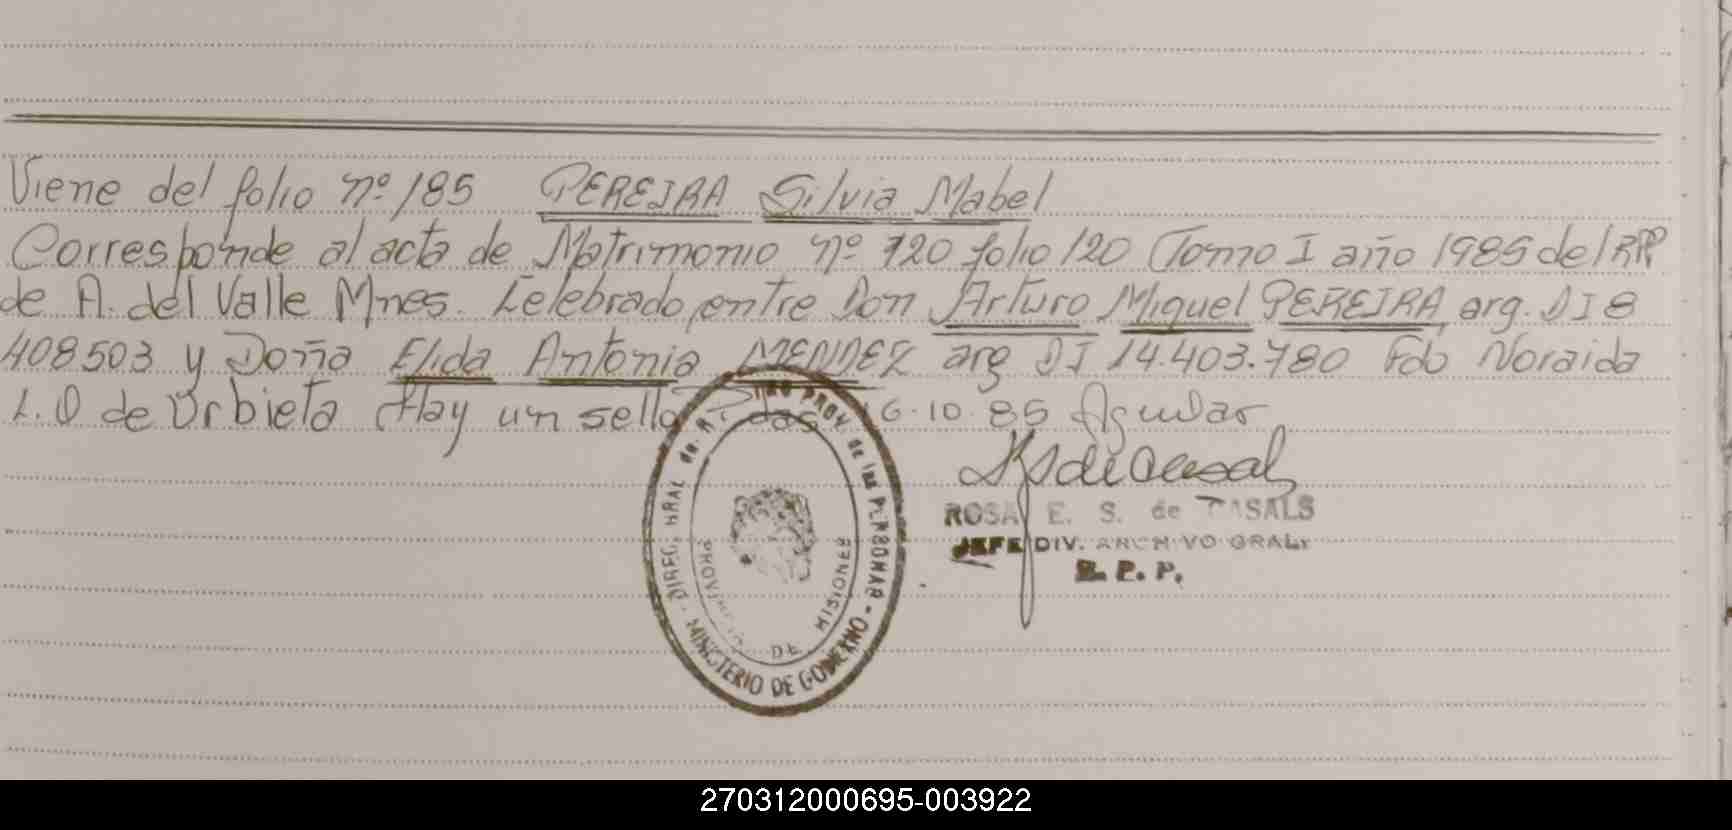 Viene del folio nº 185 PEREIRA Silvia Mabel
Corresponde al acta de Matrimonio nº 120 folio 120 Tomo I año 1985 del RPP
de A. del Valle Mnes. Celebrado entre Don Arturo Miguel PEREIRA, arg. DI 8
408503 y Doña Elida Antonia MENDEZ arg DI 14.403.780 Fdo Noraida
L. O de Urbieta Hay un sello Pdas 16.10.85 Aguilar
ROSA E. S. de CASALS
JEFE DIV. ARCHIVO GRAL.
R. P. P.
DIREC. GRAL de PROV. de las PERSONAS - MINISTERIO DE GOBIERNO -
PROVINCIA DE MISIONES
270312000695-003922